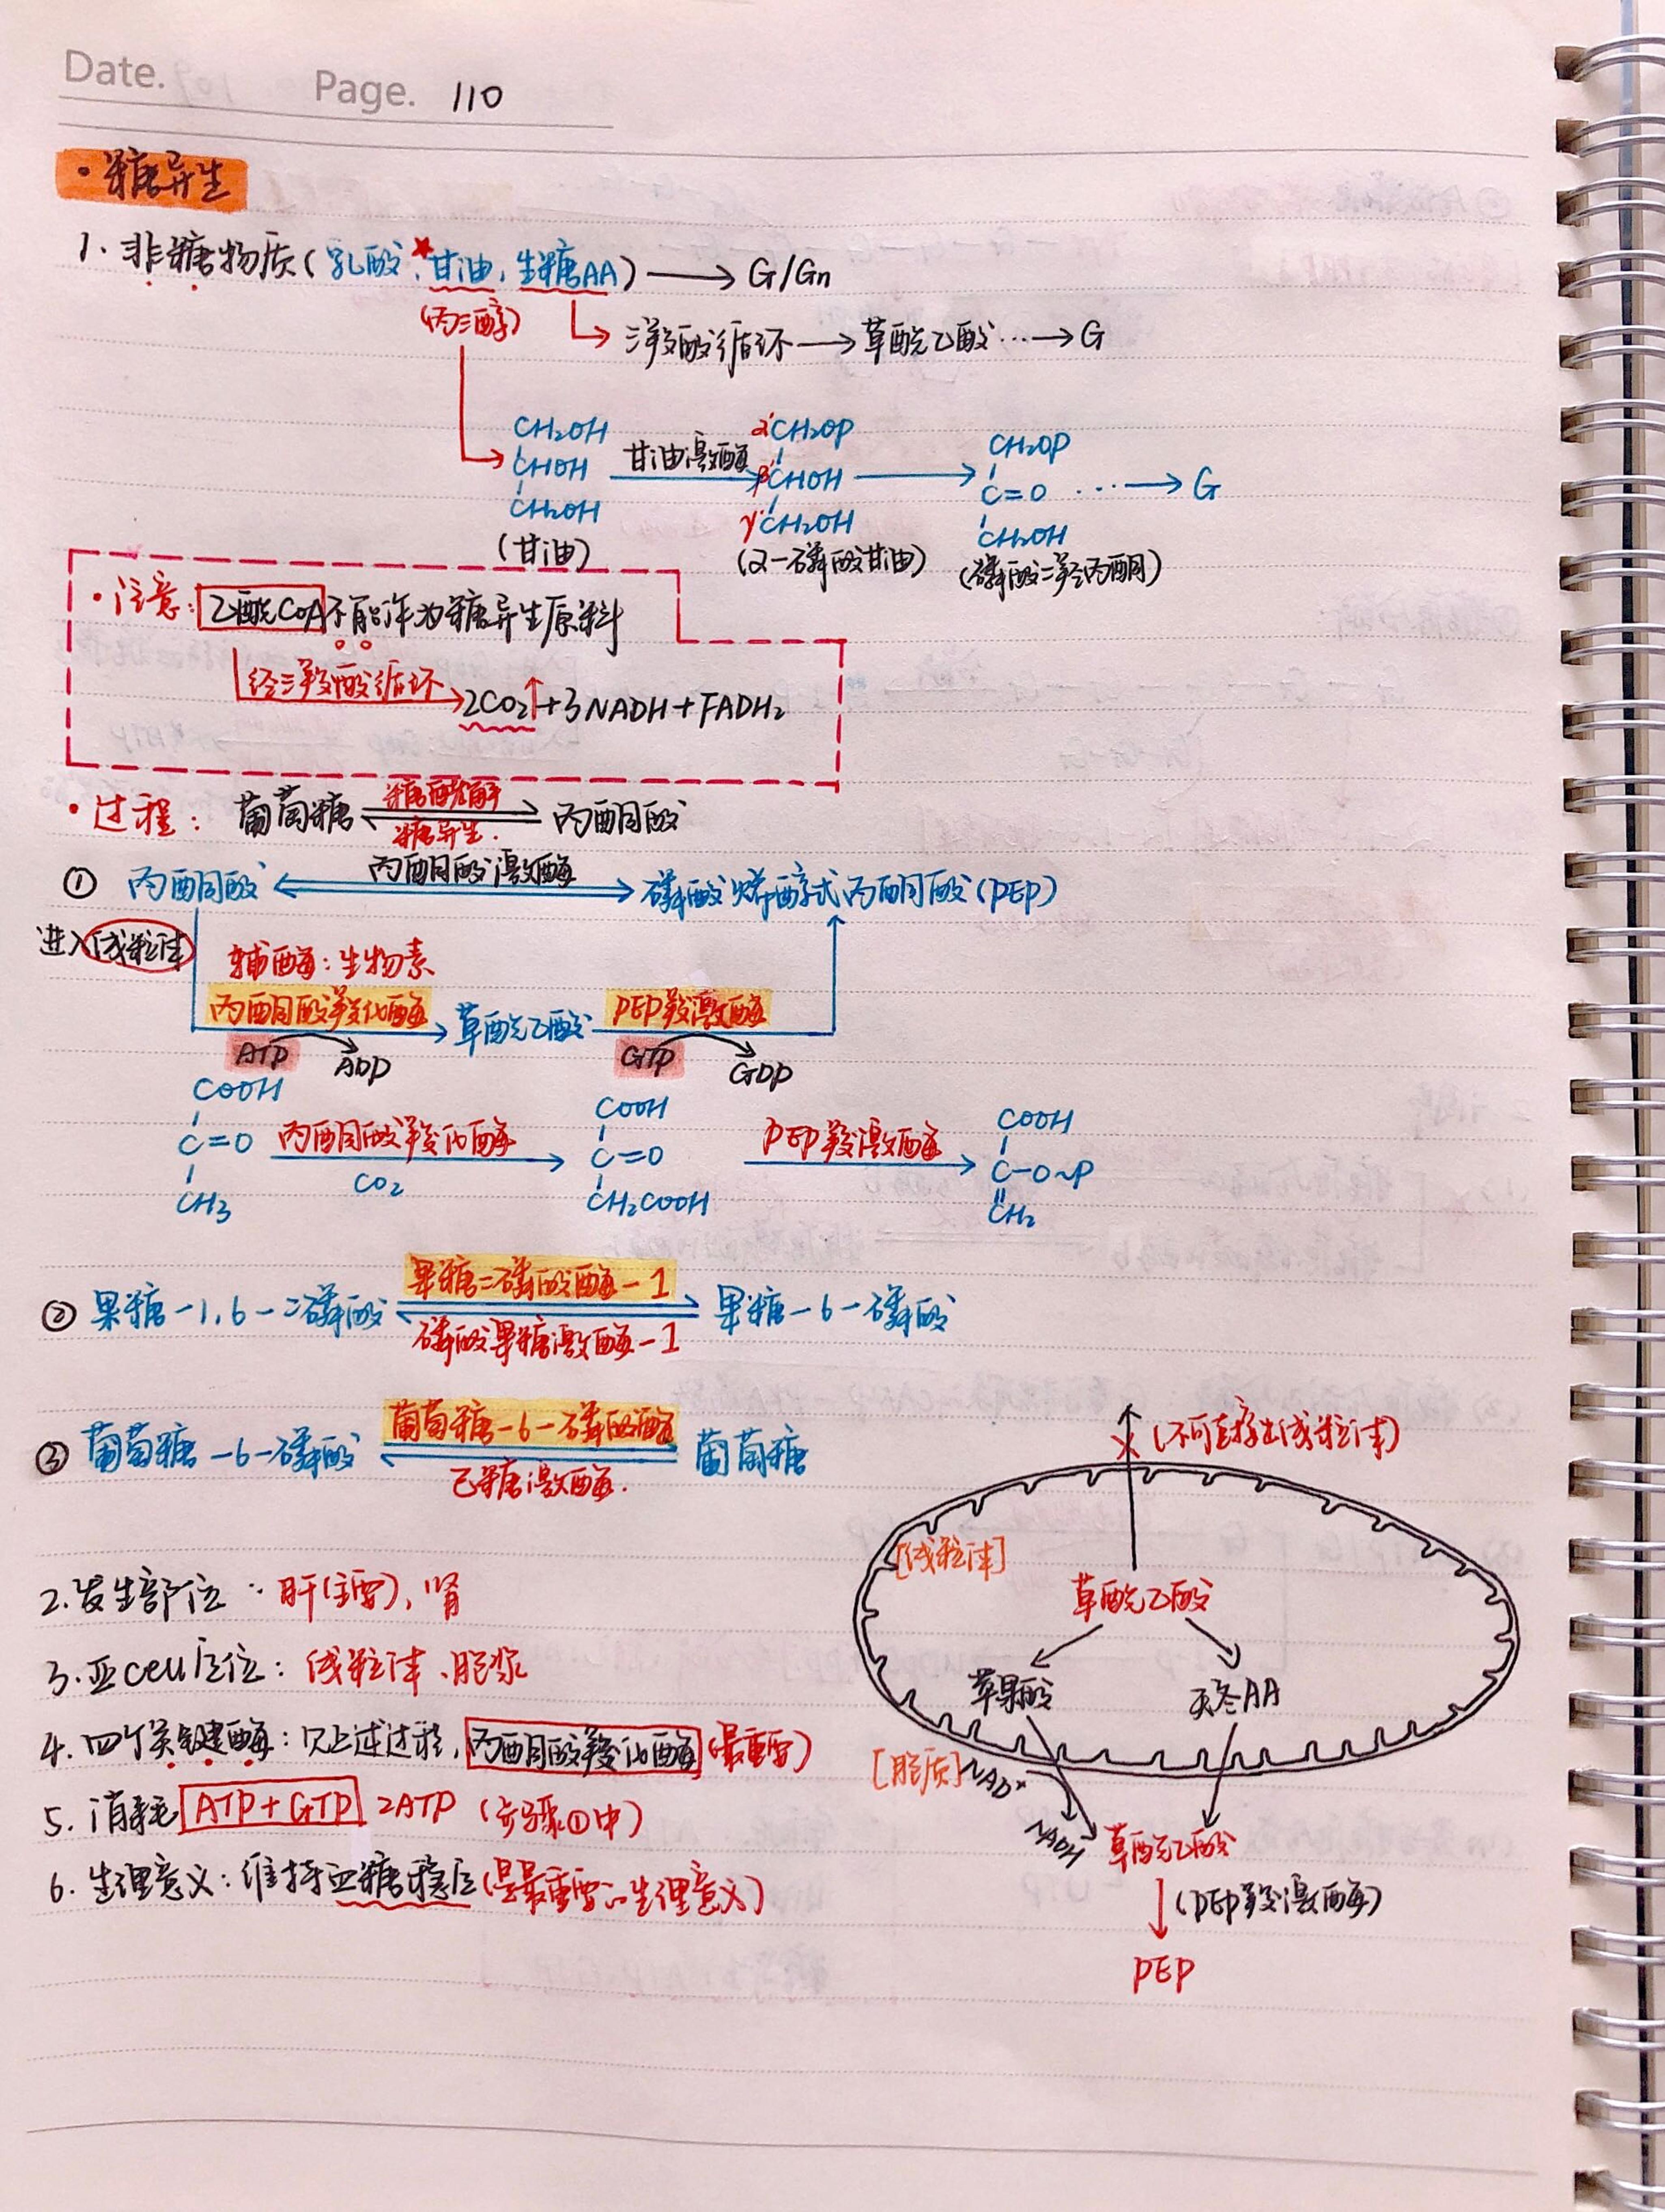 Date. Page. 110
·糖异生
1. 非糖物质(乳酸、甘油,生糖AA)→G/Gn
(丙三醇)
三羧酸循环→草酰乙酸…→G
CH2OH
CHOH
CH2OH
(甘油)
甘油激酶
αCH2OP
βCHOH
γCH2OH
(α-磷酸甘油)
CH2OP
C=O …→G
CH2OH
(磷酸二羟丙酮)
·注意:乙酰CoA不能作为糖异生原料
经三羧酸循环→2CO2↑+3NADH+FADH2
·过程: 葡萄糖 糖酵解 丙酮酸
糖异生.
① 丙酮酸 丙酮酸激酶 磷酸烯醇式丙酮酸(PEP)
进入线粒体
辅酶:生物素
丙酮酸羧化酶 草酰乙酸 PEP羧激酶
ATP ADP GTP GDP
COOH
C=O
CH3
丙酮酸羧化酶
CO2
COOH
C=O
CH2COOH
PEP羧激酶
COOH
C-O~P
CH2
② 果糖-1,6-二磷酸 果糖二磷酸酶-1 果糖-6-磷酸
磷酸果糖激酶-1
③ 葡萄糖-6-磷酸 葡萄糖-6-磷酸酶 葡萄糖
己糖激酶.
2.发生部位:肝(主要)、肾
3.亚cell定位:线粒体、胞浆
4.四个关键酶:见上述过程,丙酮酸羧化酶(最重要)
5.消耗ATP+GTP 2ATP (步骤①中)
6.生理意义:维持血糖稳定(是最重要的生理意义)
(不可直接出线粒体)
[线粒体]
草酰乙酸
苹果酸 天冬AA
[胞质] NAD+
NADH
草酰乙酸
(PEP羧激酶)
PEP